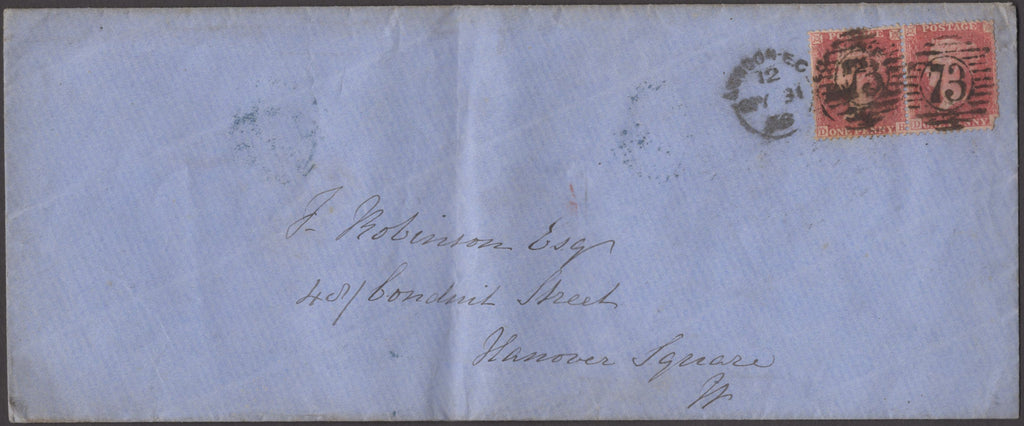 LONDON-E.C
12
MY 31
POSTAGE
POSTAGE
73
73
ONE PENNY
PENNY
F. Robinson Esqr
48/ Conduit Street
Hanover Square
W